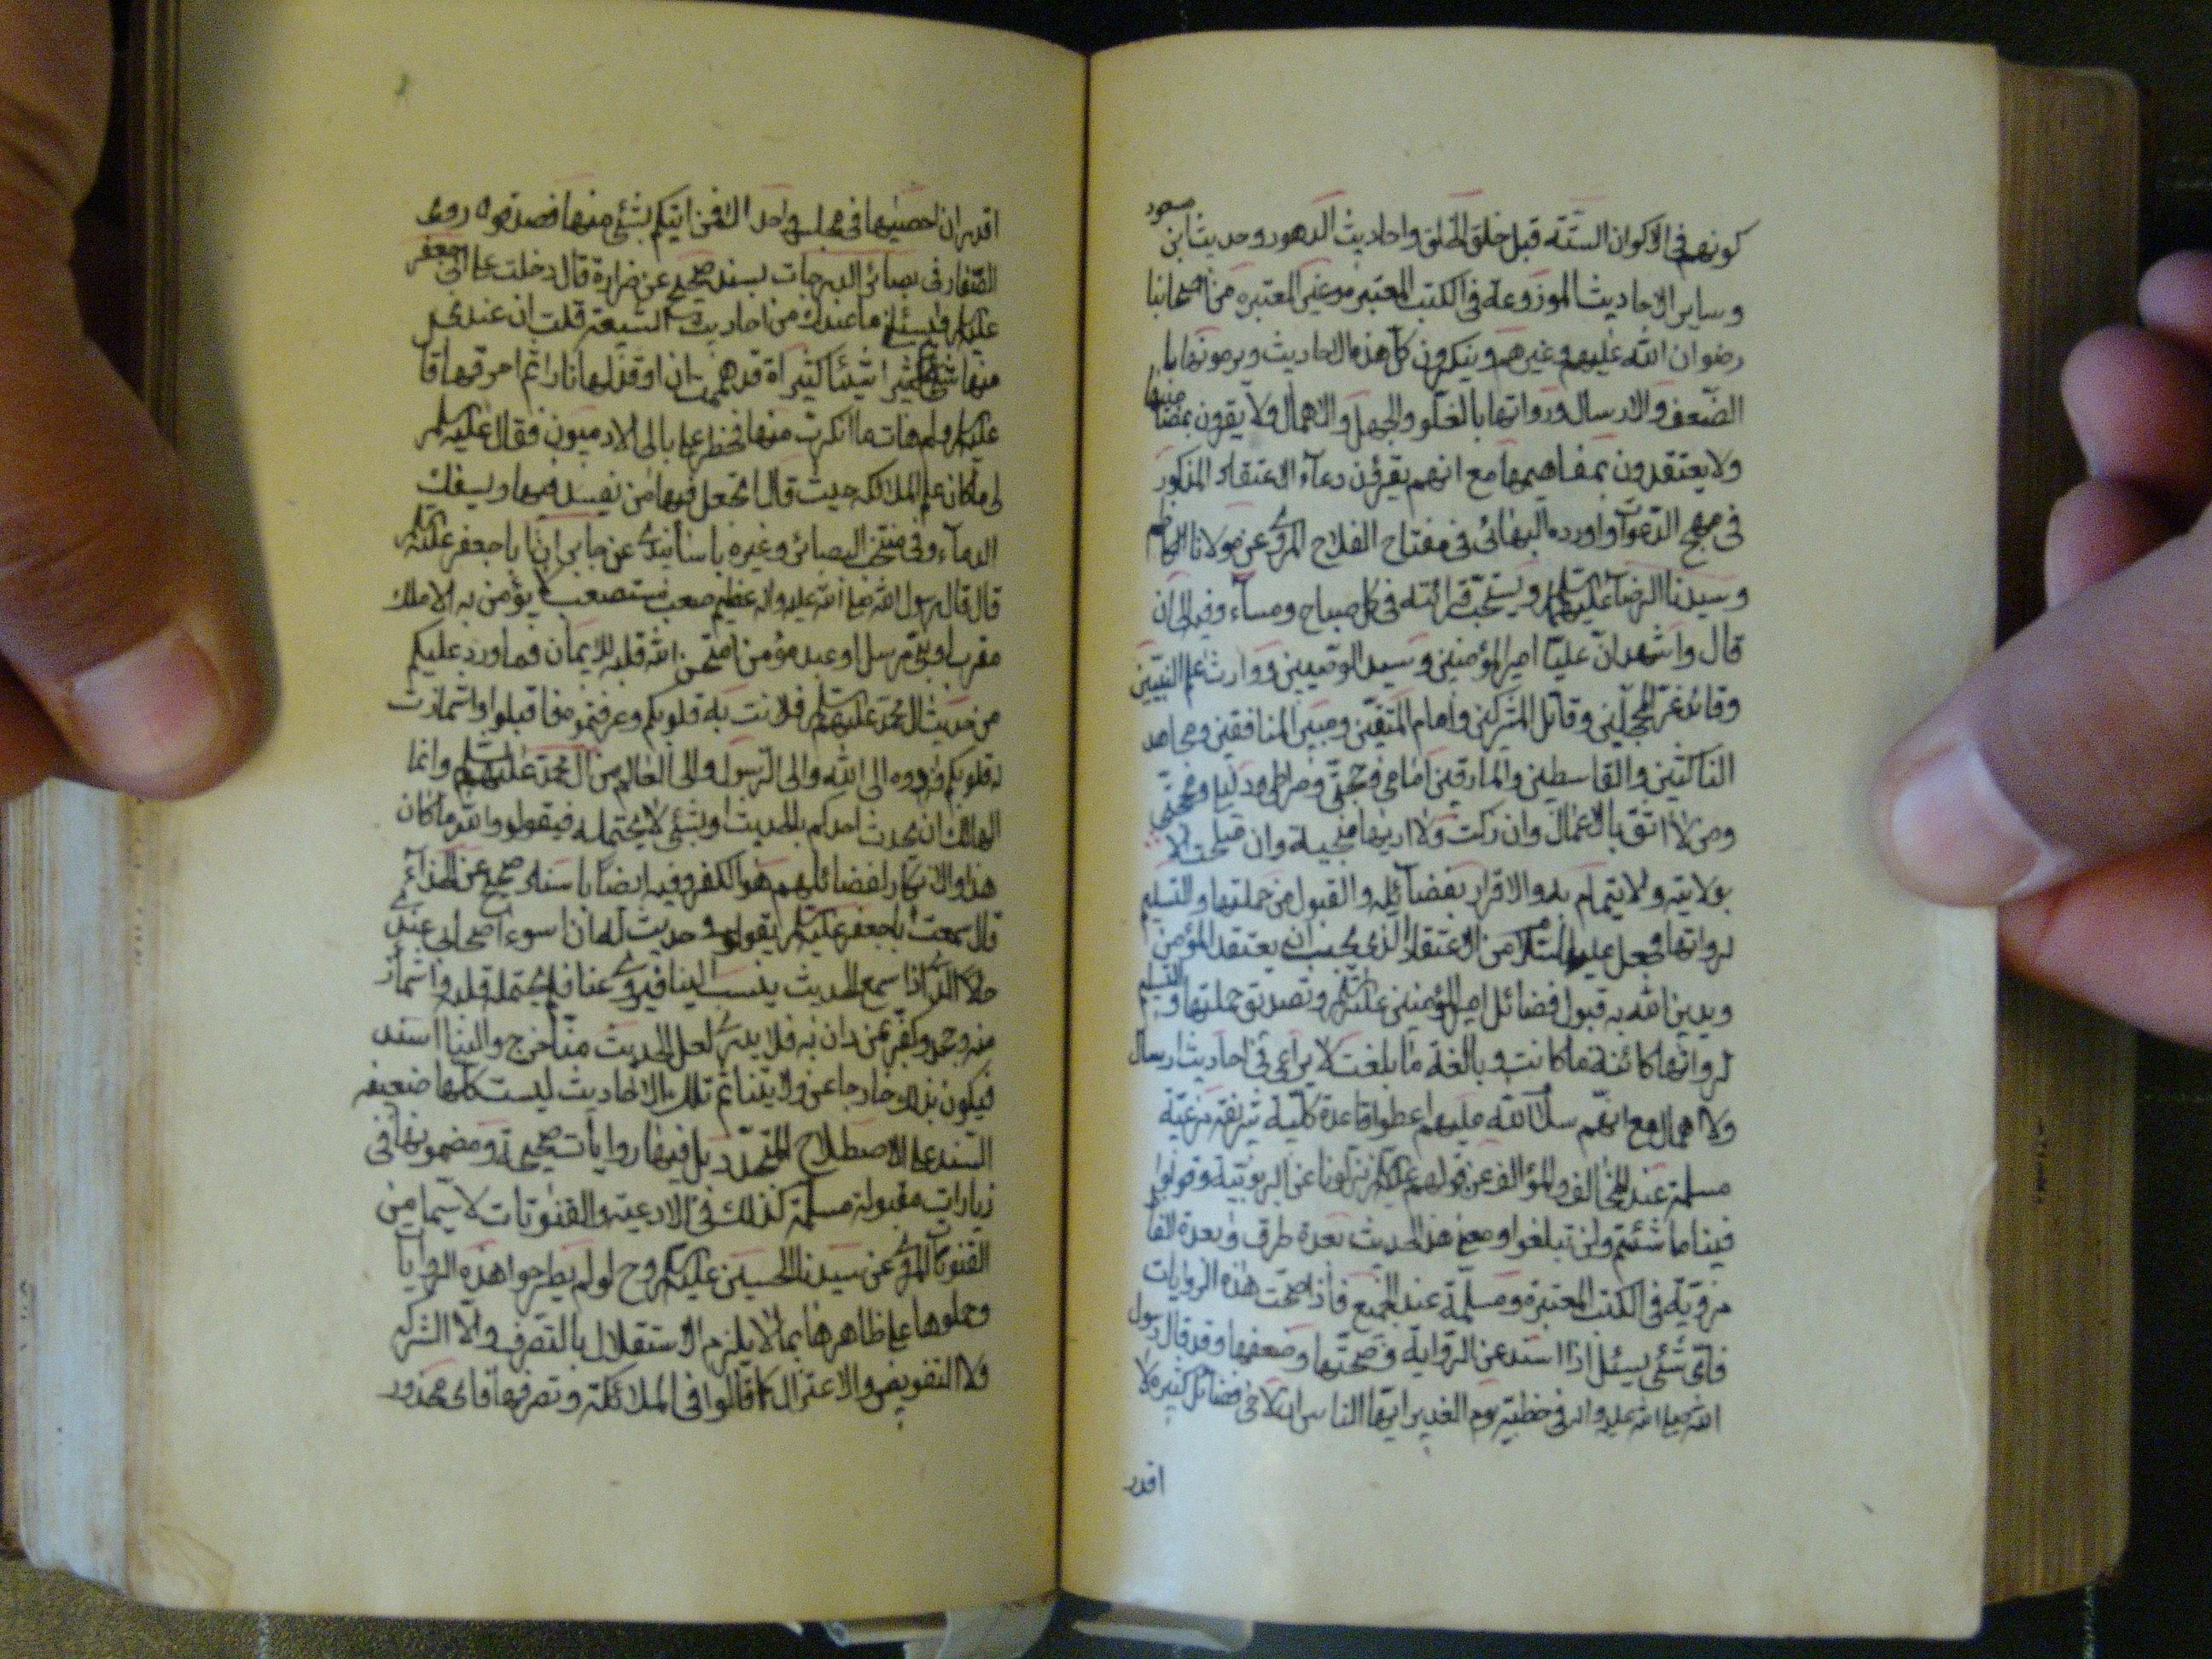 كونهم في الاكوان الستّة قبل خلق الخلق واحاديث الدهور وحديث ابن مسعود
وساير الاحاديث الموزوعة في الكتب المعتبره وغير المعتبره من اصحابنا
رضوان الله عليهم وغيرهم وينكرون كل هذه الاحاديث ويرمونها با
الضّعف والارسال ورواتها بالغلّو والجهل والاهمال ولا يقرون بمضامينها
ولا يعتقدون بمفاهيمها مع انهم يقرؤن دعآء الاعتقاد المذكور
في مهج الدّعوات واورده البهائى في مفتاح الفلاح المروى عن مولانا الكاظم
وسيدنا الرضا عليهما السلم ويستحب قرائته في كل صباح ومسآء وفيه الى ان
قال واشهد انّ عليّا امير المؤمنين وسيد الوصّيين ووارث علم النبيّين
وقائد غرّ المحجلين وقاتل المشركين وامام المتقين ومبير المنافقين ومجاهد
الناكثين والقاسطين والمارقين امامي وحجتّى وصراطى ودليلى ومحجتى
ومن لا اثق بالاعمال وان زكت ولا اريها منجية وان صلحت الا
بولايته والايتمام به والاقرار بفضآئله والقبول من حملتها والتسليم
لرواتها فجعل عليه السلام من الاعتقاد الذى يجب ان يعتقد المؤمن
ويدين الله به قبول فضائل امير المؤمنين عليه السلم وتصديق حملتها والتسليم
لرواتها كائنة ما كانت وبالغة ما بلغت لا يراعى في احاديث ارسال
ولا اهمال مع انهّم سلام الله عليهم اعطوا قاعدة كلّية شريفة مرعيّة
مسلمة عند المخالف والمؤالف عن قولهم عليهم السلم نزلونا عن الربوبّية وقولوا
فينا ما شئتم ولن تبلغوا ومعنى هذا الحديث بعدة طرق وبعدة الفاظ
مرويّة في الكتب المعتبرة ومسلّمة عند الجميع فاذا صحّت هذه الروايات
فاى شئى يسئل اذا استد عن الروّاية وصحتّها وضعفها وقد قال رسول
الله صلى الله عليه واله في خطبته يوم الغدير ايهّا الناس ان لاخى فضائل كثيره لا
اقدر
اقدر ان احصيها في مجلس واحد الا فمن اتيكم بشئ منها فصدقوه وروى
الصّفار في بصائر الدرجات بسند صحيح عن زرارة قال دخلت على ابى جعفر
عليه السلم فسئلنى ما عندك من احاديث الشيعة قلت ان عندى
منها شيئا كثيرا قد هممت ان اوقد لها نارا ثم احرقها قا
عليه السلم ولم هات ما انكرت منها فخطر على بالى الادميون فقال عليه السلم
لى ما كان علم الملائكه حيث قال اتجعل فيها من يفسد فيها ويسفك
الدمآء وفي منتخب البصائر وغيره باسانيده عن جابر ان ابا جعفر عليه السلم
قال قال رسول الله صلى الله عليه واله عظيم صعب مستصعب لا يؤمن به الا ملك
مقرب او نبيّ مرسل او عبد مؤمن امتحن الله قلبه للايمان فما ورد عليكم
من حديث ال محمد عليهم السلم فلانت به قلوبكم وعرفتموه فاقبلوا وما اشمأزت
له قلوبكم فردوه الى الله والى الرسول والى العالم من ال محمد عليهم السلم وانما
الهالك ان يحدث احدكم بالحديث او بشئى لا يحتمله فيقول والله ما كان
هذا والانكار لفضائلهم هو الكفر وفيه ايضا باسناد صحيح عن الحذاء
قال سمعت ابا جعفر عليه السلم يقول في حديث له ان اسوء اصحابى عندى
حالا الذى اذا سمع الحديث ينسب الينا ويروى عنا فلم يحتمله قلبه واشمأز
منه وجحده وكفّر من دان به فلا يدرى لعل الحديث منّا خرج والينا اسند
فيكون بذلك خارجا عن ولايتنا ثم تلك الاحاديث ليست كلها ضعيفه
السّند على الاصطلاح المتجدد بل فيها روايات صحيحة ومضمونها في
زيارات مقبولة مسلمة كذلك في الادعية والقنوتات لا سيّما من
القنوتات المروى عن سيدنا الحسين عليه السلم وح لو لم يطرحوا هذه الروايا
وحملوها على ظاهرها بما لا يلزم الاستقلال بالتصّرف ولا الشرك
ولا التفويض والاعتزال كما قالوا في الملائكة وتصرفها فاى محذور